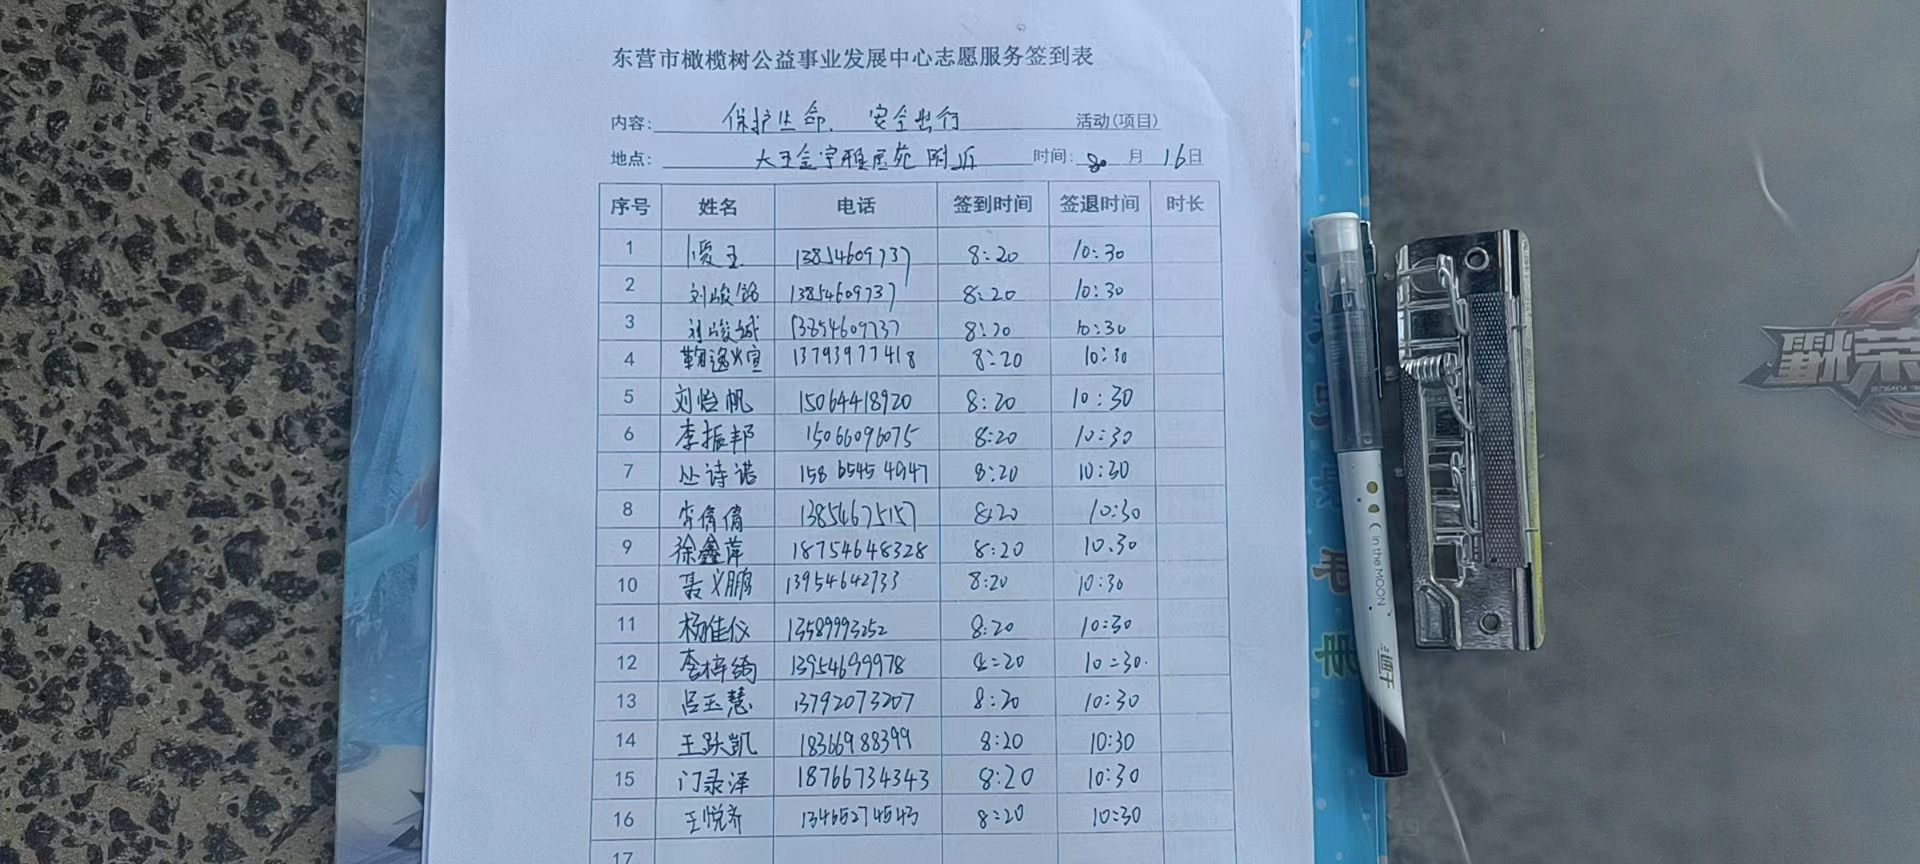 东营市橄榄树公益事业发展中心志愿服务签到表
内容: 保护生命、安全出行 活动(项目)
地点: 大王金宇雅居苑附近 时间: 8 月 16日
序号 姓名 电话 签到时间 签退时间 时长
1 13854609737 8:20 10:30
2 刘峻铭 13854609737 8:20 10:30
3 刘峻城 13854609737 8:20 10:30
4 13793977418 8:20 10:30
5 刘怡帆 15064418920 8:20 10:30
6 李振邦 15066096075 8:20 10:30
7 丛诗诺 158 6545 4947 8:20 10:30
8 李倩倩 13854675157 8:20 10:30
9 徐鑫萍 18754648328 8:20 10:30
10 聂义鹏 13954642733 8:20 10:30
11 杨佳仪 13589993252 8:20 10:30
12 李梓绮 13954699978 8:20 10:30
13 吕玉慧 13792073207 8:20 10:30
14 王跃凯 18366988399 8:20 10:30
15 门录泽 18766734343 8:20 10:30
16 王悦齐 13465274543 8:20 10:30
17
in the MOON